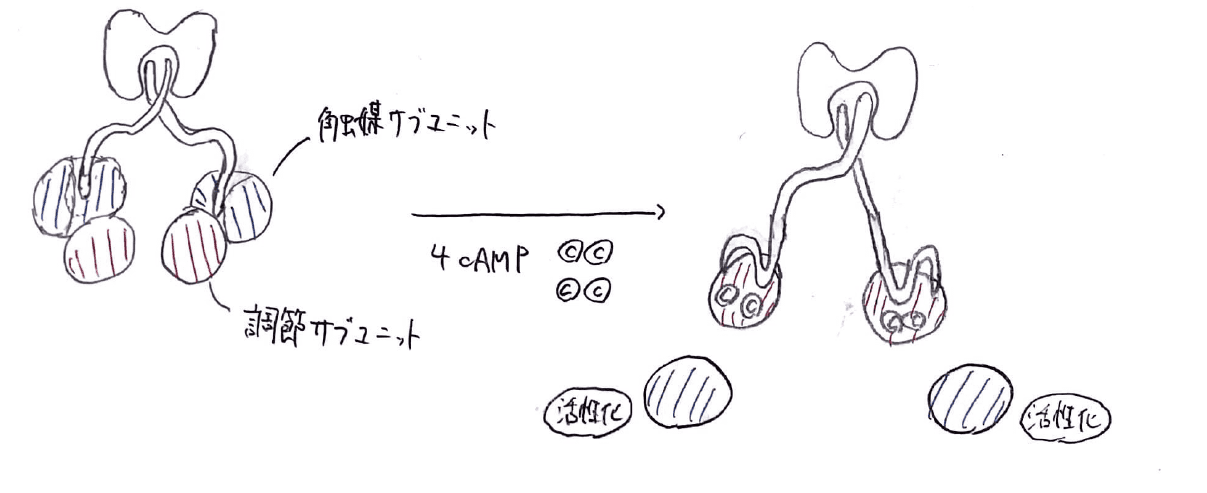 触媒サブユニット
4 cAMP
C C
C C
調節サブユニット
C C
C C
活性化
活性化